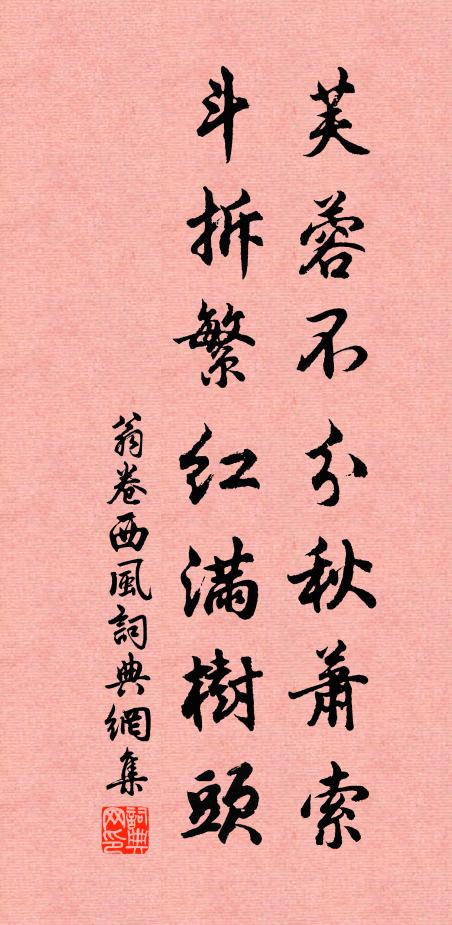 芙蓉不分秋萧索
斗拆繁红满樹頭
翁卷西風詞典網集
詞典网印